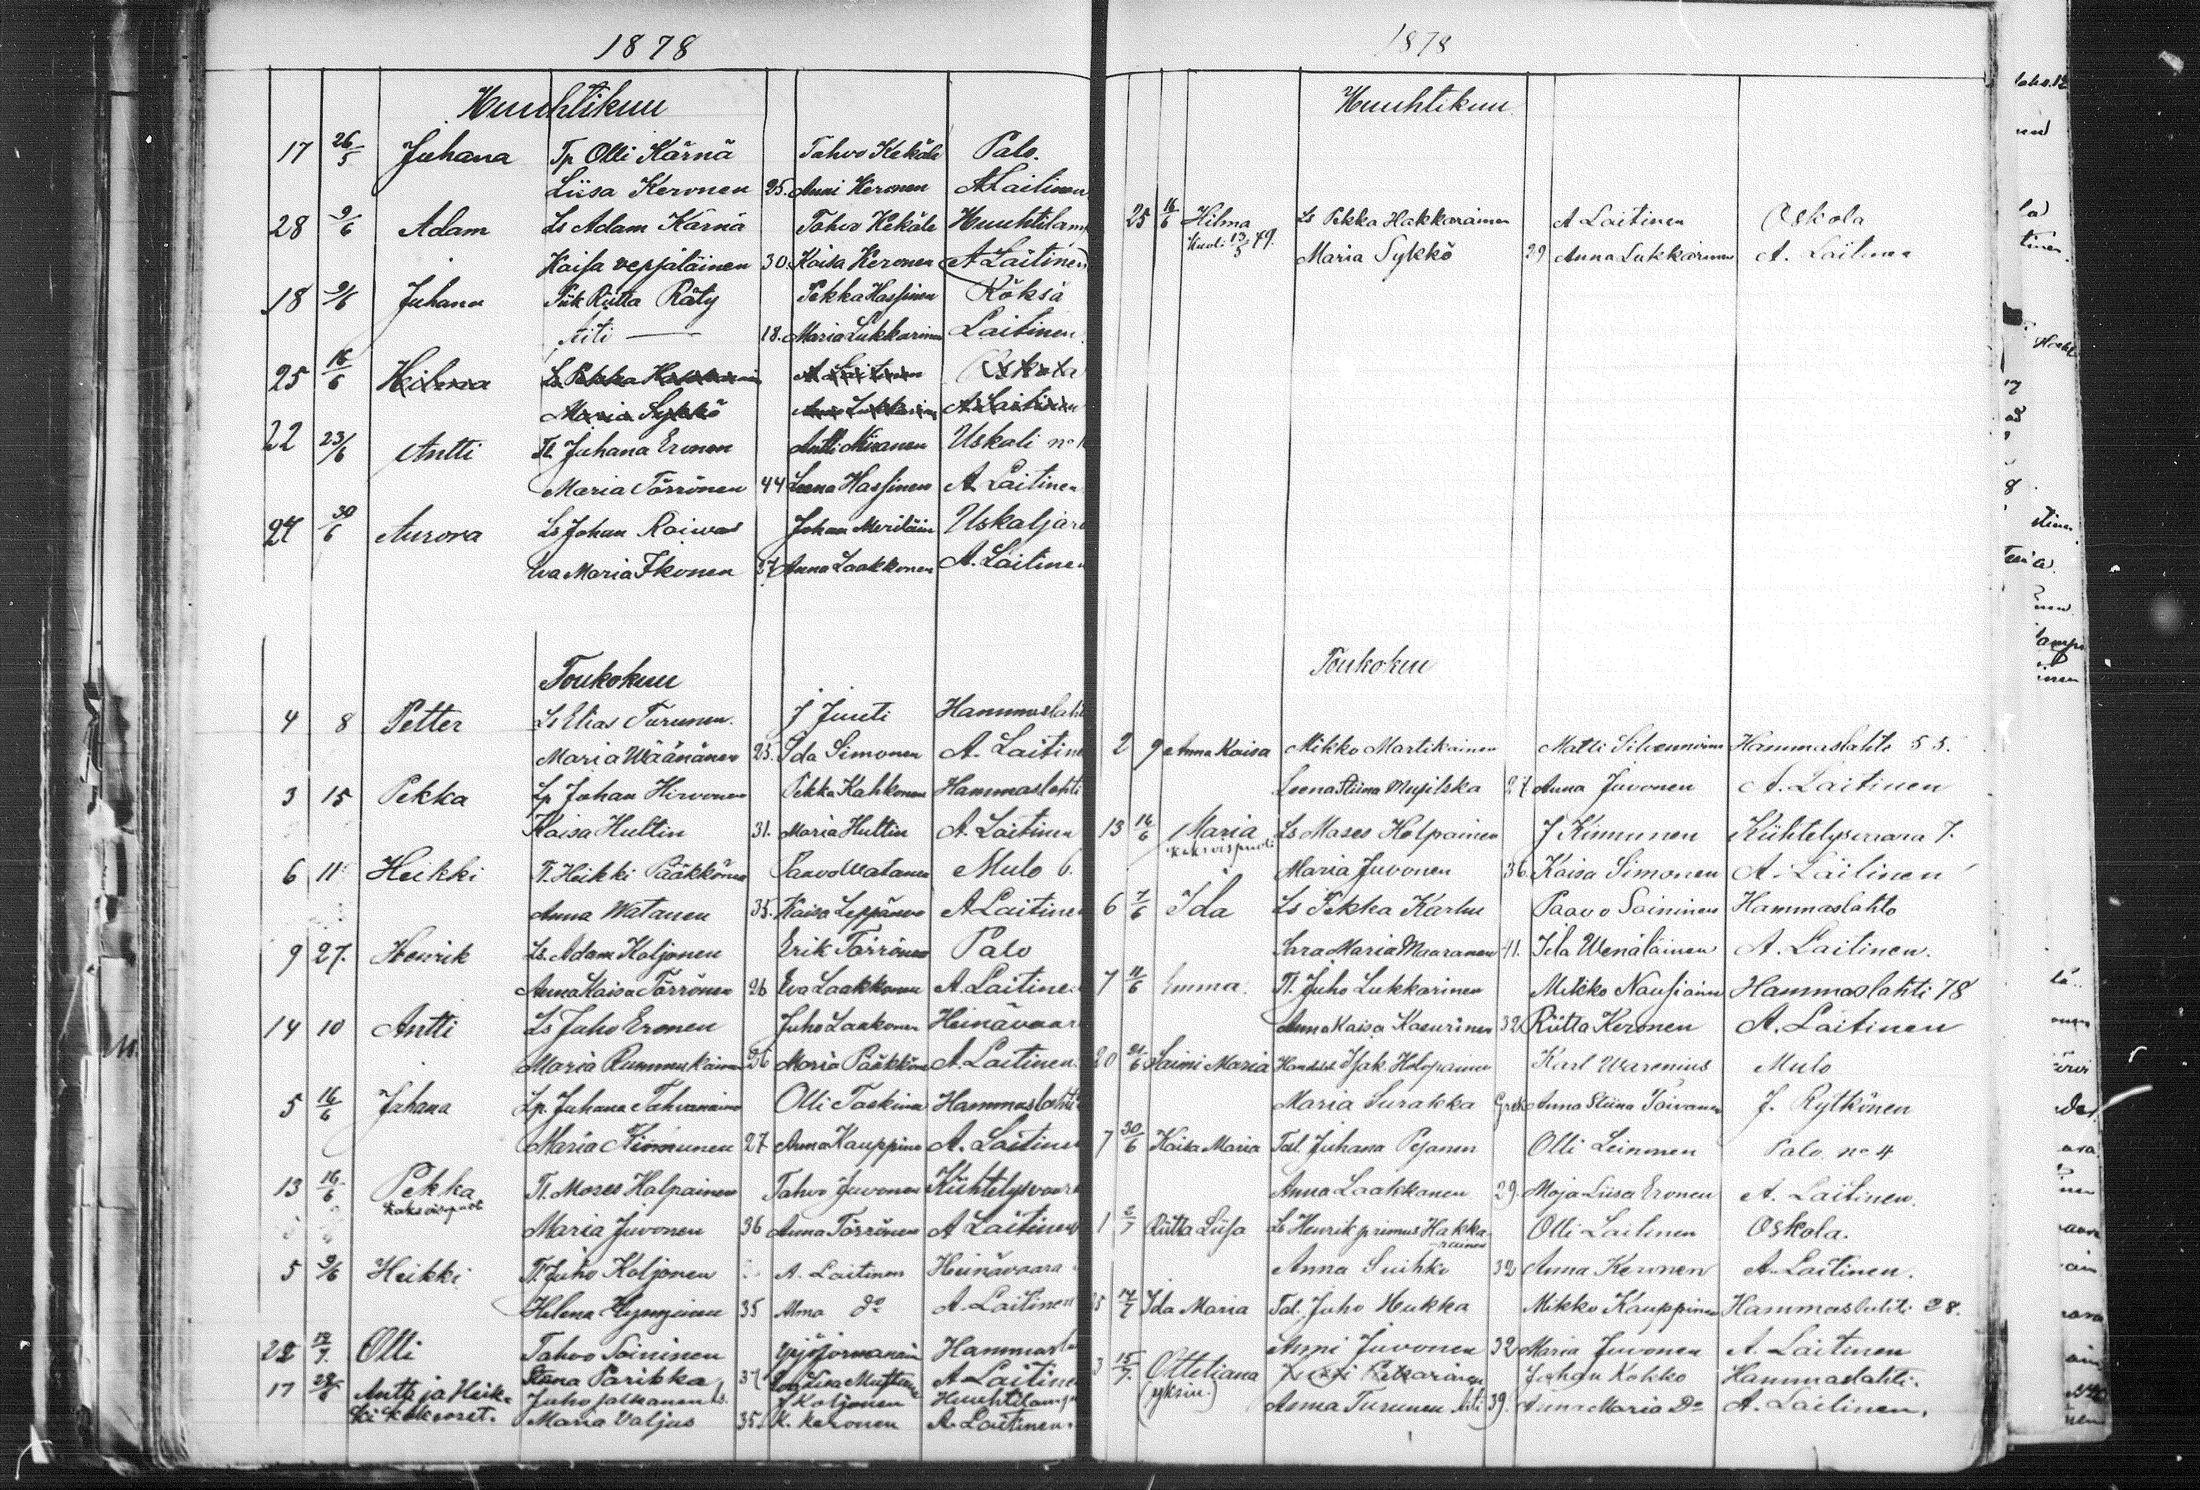 1878
Huuhtikuu
17 26/5 Juhana Tp Olli Kärnä Tahvo Kekäle Palo.
Liisa Keronen 25. Anni Keronen A Laitinen
28 9/6 Adam Ls Adam Kärnä Tahvo Kekäle Huuhtilam
Kaisa vepsäläinen 30. Kaisa Keronen A Laitinen
18 9/6 Juhana Piik Riitta Räty Pekka Hassinen Röksä
Äiti — 18. Maria Lukkarinen Laitinen
25 16/6 Hilma Ls Pekka Hakkarainen A Laitinen Oskola
Maria Sykkö Anna Lukkarinen A Laitinen
22 23/6 Antti Tl. Juhana Eronen Antti Miranen Uskali no
Maria Törrönen 44 Leena Hassinen A. Laitinen
27 30/6 Aurora Ls Johan Raiwas Johan Meriläin Uskaljar
Eva Maria Ikonen 37 Anna Laakkonen A. Laitinen
Toukokuu
4 8 Petter Ls Elias Turunen. J Juuti Hammaslaht
Maria Wäänänen 25. Ida Simonen A. Laitine
3 15 Pekka Lp Johan Hirvonen Pekka Kahkonen Hammaslahti
Kaisa Hultin 31. Maria Hultin A. Laitinen
6 11 Heikki Tl. Heikki Pääkkönen Paavo Watanen Mulo 6.
Anna Watanen 35. Kaisa Leppänen A Laitine
9 27. Henrik Ls. Adam Koljonen Erik Törrönen Palo
Anna Kaisa Törrönen 26 Eva Laakkonen A. Laitine
14 10 Antti Ls Juho Eronen Juho Laakonen Heinävaar
Maria Rummukainen 26 Maria Pääkkönen A. Laitinen
5 16/6 Juhana Lp. Juhana Tahvanainen Olli Taskinen Hammaslahti
Maria Kinnunen 27 Anna Kauppinen A. Laitine
13 16/6 Pekka Tl. Moses Holpainen Tahvo Juvonen Kiihtelysvaara
kaksoispuoli
Maria Juvonen 36 Anna Törrönen A Laitinen
5 9/6 Heikki Tl. Juho Koljonen A. Laitinen Heinävaara
Helena 35 Alma Do A. Laitinen
22 14/7. Olli Tahvo Soininen Yrjö Hammasla
Stiina Parikka 37 A Laitine
17 28/8 Antti ja Heik- Juho Jalkanen Ls. Koljonen Huuhtilamp
ki kaksoset. Maria Valjus 35. K. Keronen A. Laitinen.
1878
Huuhtikuu
25 16/6 Hilma Ls Pekka Hakkarainen A Laitinen Oskola
Kuoli 13/5 49.
Maria Sykkö 29 Anna Lukkarinen A. Laitinen
Toukokuu
2 9 Anna Kaisa Mikko Martikainen Matti Silvennoinen Hammaslahti 55.
Leena Stiina 27 Anna Juvonen A. Laitinen
13 16/6 Maria Ls Moses Holpainen J Kinnunen Kiihtelysvaara 7.
kaksoispuoli
Maria Juvonen 36. Kaisa Simonen A. Laitinen
6 7/6 Ida Ls Pekka Karhu Paavo Soininen Hammaslahto
Sara Maria Maaranen 41. Ida Wenäläinen A. Laitinen.
7 11/6 Emma Tl. Juho Lukkarinen Mikko Hammaslahti 78
Anna Kaisa Kaurinen 32 Riitta Keronen A. Laitinen
20 21/6 Saimi Maria Isak Holopainen Karl Warenius Mulo
Maria Surakka Grek Anna Stiina Toivanen J. Rytkönen
7 30/6 Kaisa Maria Tal. Juhana Pesonen Olli Leinonen Palo no 4
Anna Laakkonen 29. Maja Liisa Eronen A. Laitinen.
1 2/7 Riitta Liisa Ls Henrik primus Hakka- Olli Laitinen Oskola.
rainen
Anna Suihko 32 Anna Keronen A. Laitinen.
5 14/7 Ida Maria Tal. Juho Heukka Mikko Kauppinen Hammaslahti 28.
Anni Juvonen 32 Maria Juvonen A. Laitinen
3 15/7. Otteliana Johan Kokko Hammaslahti.
Anna Turunen Äiti 39. Anna Maria Do A. Laitinen.